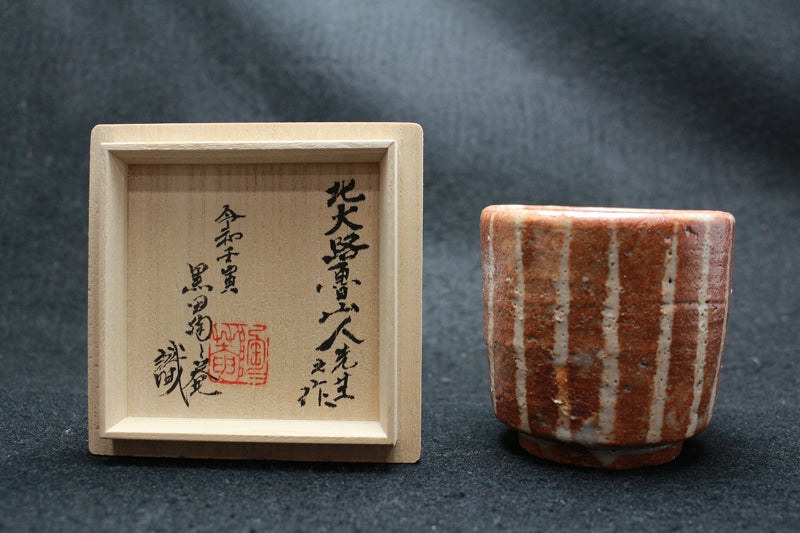 北大路魯山人先生
玉作
令和壬寅
黒田陶々菴
識